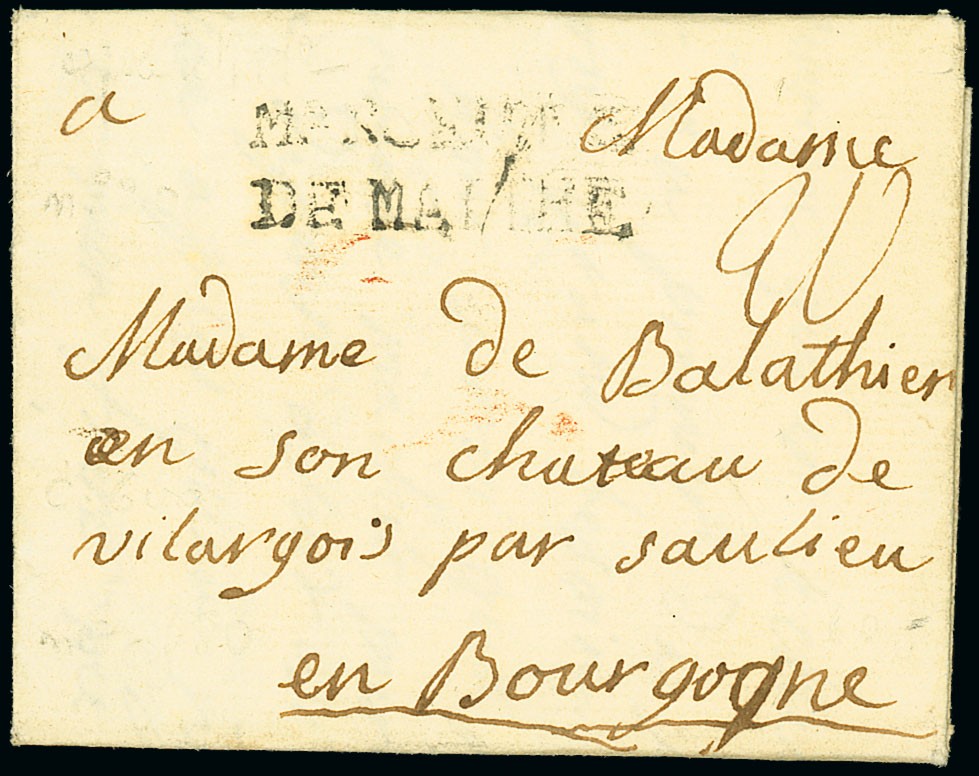 a Madame
DE MALTHE
Madame de Balathier
en son chateau de
vilargois par saulieu
en Bourgogne